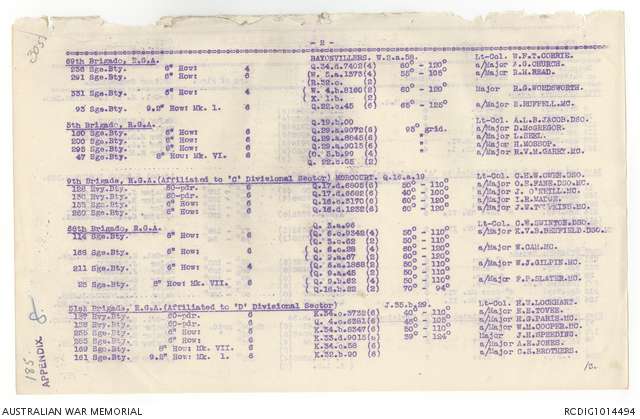 - 2 -
69th Brigade, R.G.A. BAYONVILLERS. W.2.a.58. Lt-Col. W.F.T. CORRIE.
236 Sge.Bty. 6" How: 4 Q.34.d.7402(4) 80° - 120° a/Major F.G. CHURCH.
291 Sge.Bty. 6" How: 6 (W. 5.a.1373(4) 55° - 105° a/Major R.H. READ.
(R.32.c. (2)
331 Sge.Bty. 6" How: 4 (W. 4.b.8160(2) 60° - 120° Major R.G. WORDSWORTH.
(X. 1.b. (2)
93 Sge.Bty. 9.2" How: Mk. 1. 6 Q.22.c.45 (6) 65° - 125° a/Major E. HUFFELL.MC.
5th Brigade, R.G.A. Q.19.b.00 Lt-Col. A.L.B. JACOB.DSO.
6" How: 6 Q.29.a.9072(6) 95° grid. a/Major D. McGREGOR.
200 Sge.Bty. 6" How: 6 Q.29.a.8645(6) " a/Major L. SEEL.
295 Sge.Bty. 6" How: 6 Q.29.a.9015(6) " a/Major H. MOSSOP.
47 Sge.Bty. 8" How: Mk. VI. 6 " a/Major R.W.M. GARRY.MC.
Q. 22.b.05 (2)
9th Brigade, R.G.A. (Affiliated to 'C' Divisional Sector) MORCOURT. Q.16.a.19 Lt-Col. C.H.W. OWEN.DSO.
128 Hvy.Bty. 60-pdr. 6 Q.17.d.6805(6) 50° - 110° a/Major C.E. FANE.DSO.MC.
130 Hvy.Bty. 60-pdr. 6 Q.17.d.6662(6) 40° - 100° a/Major J. O'NEILL.MC.
Sge.Bty. 6" How: 6 Q.16.d.3170(6) 60° - 120° a/Major I.R. MADGE.
260 Sge.Bty. 6" How: 6 Q.16.d.1232(6) 60° - 120° a/Major
Brigade, R.G.A. Q. 3.a.96 Lt-Col. C.W. SWINTON.DSO.
114 Sge.Bty. 6" How: 6 (Q. 6.c.9342(4) 50° - 110° a/Major E.V.B.
(Q. 3.c.62 (2) 50° - 110°
Sge.Bty. 6" How: 6 (Q. 6.c.28 (4) 50° - 110° a/Major W. CAM.MC.
(Q. 9.a.67 (2) 60° - 120°
211 Sge.Bty. 6" How: 4 (Q. 6.a.1868(2) 50° - 110° a/Major W.J. GILPIN.MC.
(Q. 9.a.45 (2) 50° - 110°
25 Sge.Bty. 8" How: Mk. VII. 6 (Q. 9.b.62 (4) 50° - 110° a/Major F.P. SLATER.MC.
(Q.16.b.22 (2) 70° - 94°
51st Brigade, R.G.A. (Affiliated to 'D' Divisional Sector) J.35.b.29. Lt-Col. H.W. LOCKHART.
Hvy.Bty. 60-pdr. 6 K.34.c.3732(6) 40° - 100° a/Major R.E. TOVEY.
138 Hvy.Bty. 60-pdr. 6 Q. 4.c.6361(6) 50° - 110° a/Major H.G. PARIS.MC.
Sge.Bty. 6" How: 6 K.34.b.0347(6) 50° - 110° a/Major W.M. COOPER.MC.
Sge.Bty. 6" How: 6 K.33.d.9015(6) 39° - 124° Major J.H. SPEEDING.
169 Sge.Bty. 8" How: Mk. VII. 6 K.34.c.58 (6) a/Major A.E. JONES.
161 Sge.Bty. 9.2" How: Mk. 1. 6 K.32.b.90 (6) a/Major C.S. BROTHERS.
185
APPENDIX
AUSTRALIAN WAR MEMORIAL RCDIG1014494